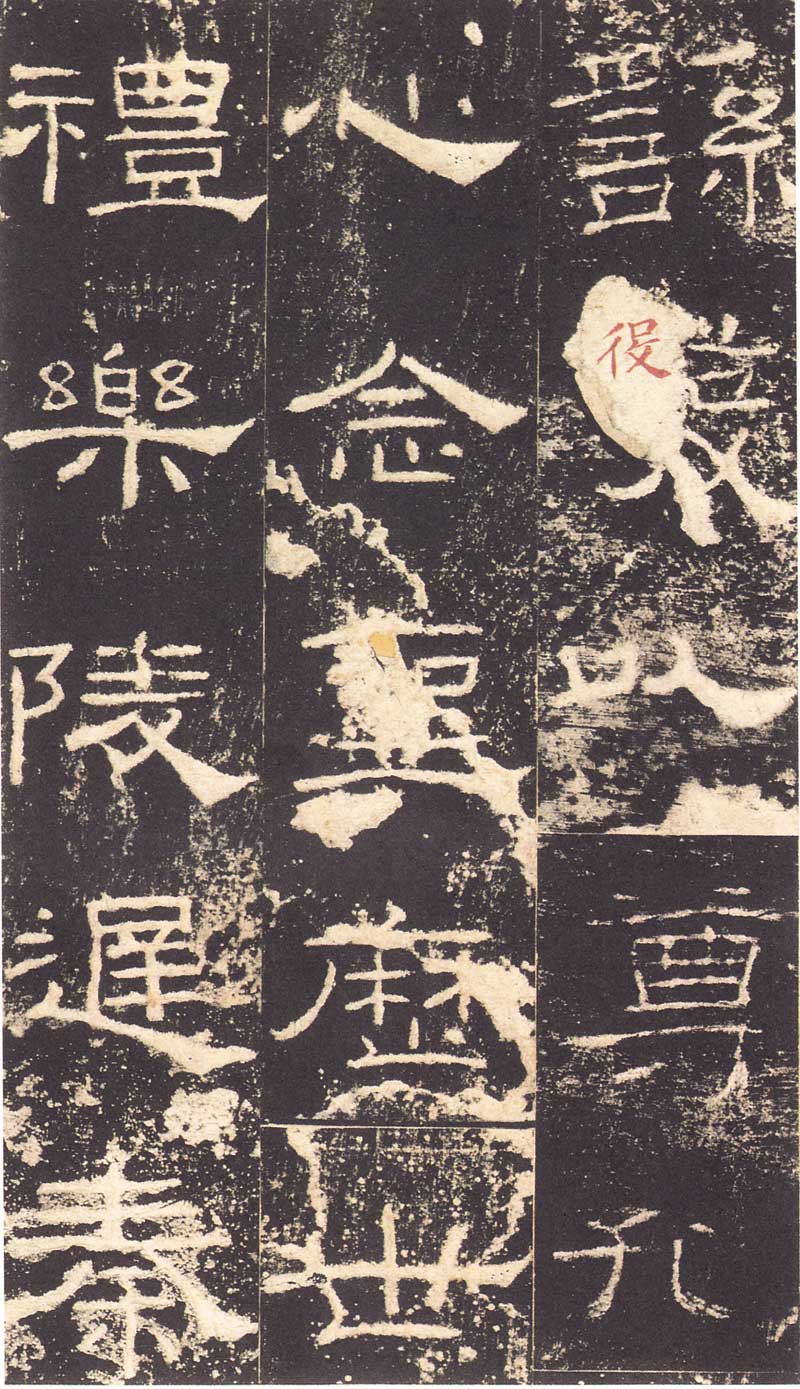 繇發以尊孔
役
心念聖歷世
禮樂陵遲秦